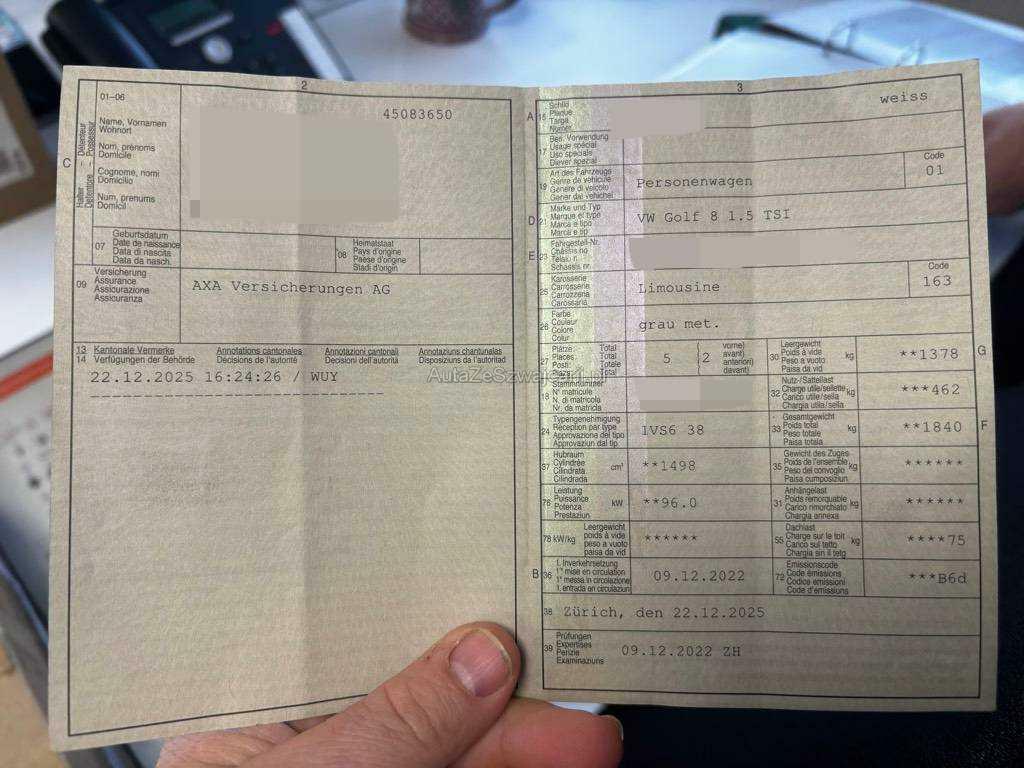 2
01-06
Name, Vornamen
Wohnort
Nom, prénoms
Domicile
Cognome, nomi
Domicilio
Num, prenums
Domicil
C
Halter
Détenteur
45083650
07
Geburtsdatum
Date de naissance
Data di nascita
Data da nasch.
08
Heimatstaat
Pays d'origine
Paese d'origine
Stadi d'origin
09
Versicherung
Assurance
Assicurazione
Assicuranza
AXA Versicherungen AG
13
14
Kantonale Vermerke
Verfügungen der Behörde
Annotations cantonales
Décisions de l'autorité
Annotazioni cantonali
Decisioni dell'autorità
Annotaziuns chantunalas
Disposiziuns da l'autoritad
22.12.2025 16:24:26 / WUY
3
A
Schild
Plaque
Targa
Numer
weiss
17
Bes. Verwendung
Usage spécial
Uso speciale
Diever spezial
19
Art des Fahrzeugs
Genre de véhicule
Genere di veicolo
Gener dal vehichel
Personenwagen
Code
01
D
21
Marke und Typ
Marque et type
Marca e tipo
Marca e tip
VW Golf 8 1.5 TSI
E
23
Fahrgestell-Nr.
Châssis no
Telaio n.
Schassis nr.
25
Karosserie
Carrosserie
Carrozzeria
Carossaria
Limousine
Code
163
26
Farbe
Couleur
Colore
Colur
grau met.
27
Plätze: Total
Places: Total
Posti: Totale
Plazs: Total
5
(2
vorne)
avant)
anteriori)
davant)
30
Leergewicht
Poids à vide
Peso a vuoto
Paisa da vid
kg
**1378
G
18
Stammnummer
N° matricule
N. di matricola
Nr. da matricla
32
Nutz-/Sattellast
Charge utile/sellette
Carico utile/sella
Chargia utila/sella
kg
***462
24
Typengenehmigung
Réception par type
Approvazione del tipo
Approvaziun dal tip
1VS6 38
33
Gesamtgewicht
Poids total
Peso totale
Paisa totala
kg
**1840
F
37
Hubraum
Cylindrée
Cilindrata
Cilindrada
cm³
**1498
35
Gewicht des Zuges
Poids de l'ensemble
Peso del convoglio
Paisa cumposiziun
kg
******
76
Leistung
Puissance
Potenza
Prestaziun
kW
**96.0
31
Anhängelast
Poids remorquable
Carico rimorchiato
Chargia annexa
kg
******
78 kW/kg
Leergewicht
poids à vide
peso a vuoto
paisa da vid
******
55
Dachlast
Charge sur le toit
Carico sul tetto
Chargia sin il tetg
kg
****75
B
36
1. Inverkehrsetzung
1re mise en circulation
1a messa in circolazione
1. entrada en circulaziun
09.12.2022
72
Emissionscode
Code émissions
Codice emissioni
Code d'emissiuns
***B6d
38
Zürich, den 22.12.2025
39
Prüfungen
Expertises
Perizie
Examinaziuns
09.12.2022 ZH